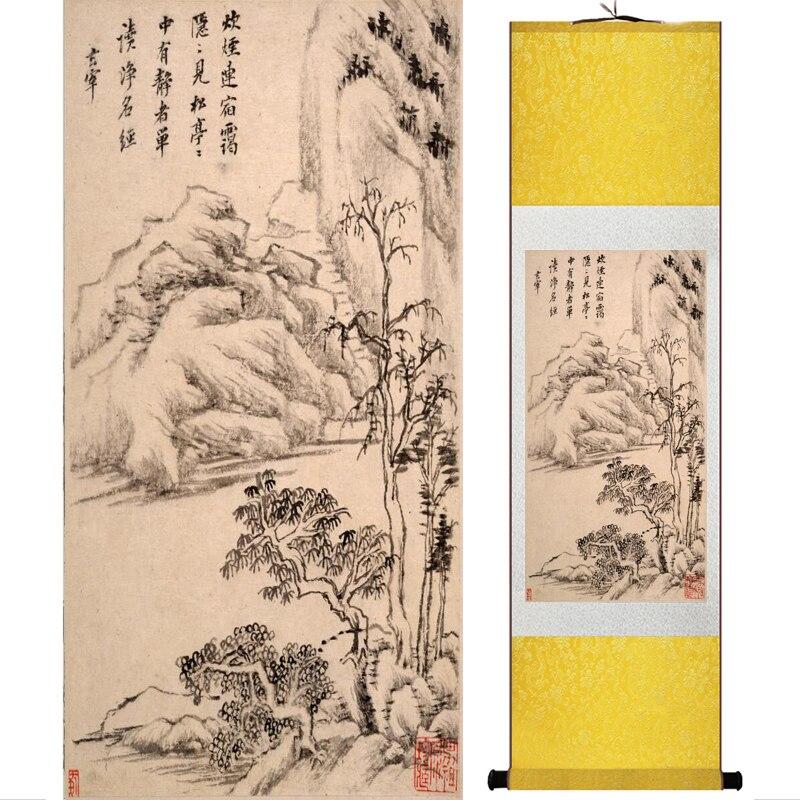 炊煙連宿靄
隱〻見松亭〻
中有靜者單
讀淨名經
玄宰